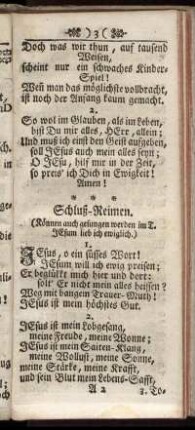 ( 3 (
Doch was wir thun, auf tausend
Weisen,
scheint nur ein schwaches Kinder-
Spiel!
Weñ man das möglichste vollbracht,
ist noch der Anfang kaum gemacht.
2.
So wol im Glauben, als im Leben,
bist Du mir alles, HErr, allein;
Und muß ich einst den Geist aufgeben,
soll JEsus auch mein alles seyn;
O JEsu, hilf mir in der Zeit,
so preis' ich Dich in Ewigkeit!
Amen!
* * *
Schluß-Reimen.
(Können auch gesungen werden im T.
JEsum lieb ich ewiglich.)
1.
JEsus, o ein süsses Wort!
JEsum will ich ewig preisen;
Er beglückte mich hier und dort;
solt' Er nicht mein alles heissen?
Weg mit bangem Trauer-Muth!
JEsus ist mein höchstes Gut.
2.
JEsus ist mein Lobgesang,
meine Freude, meine Wonne;
JEsus ist mein Saiten-Klang,
meine Wollust, meine Sonne,
meine Stärke, meine Krafft,
und sein Blut mein Lebens-Safft,
A 2